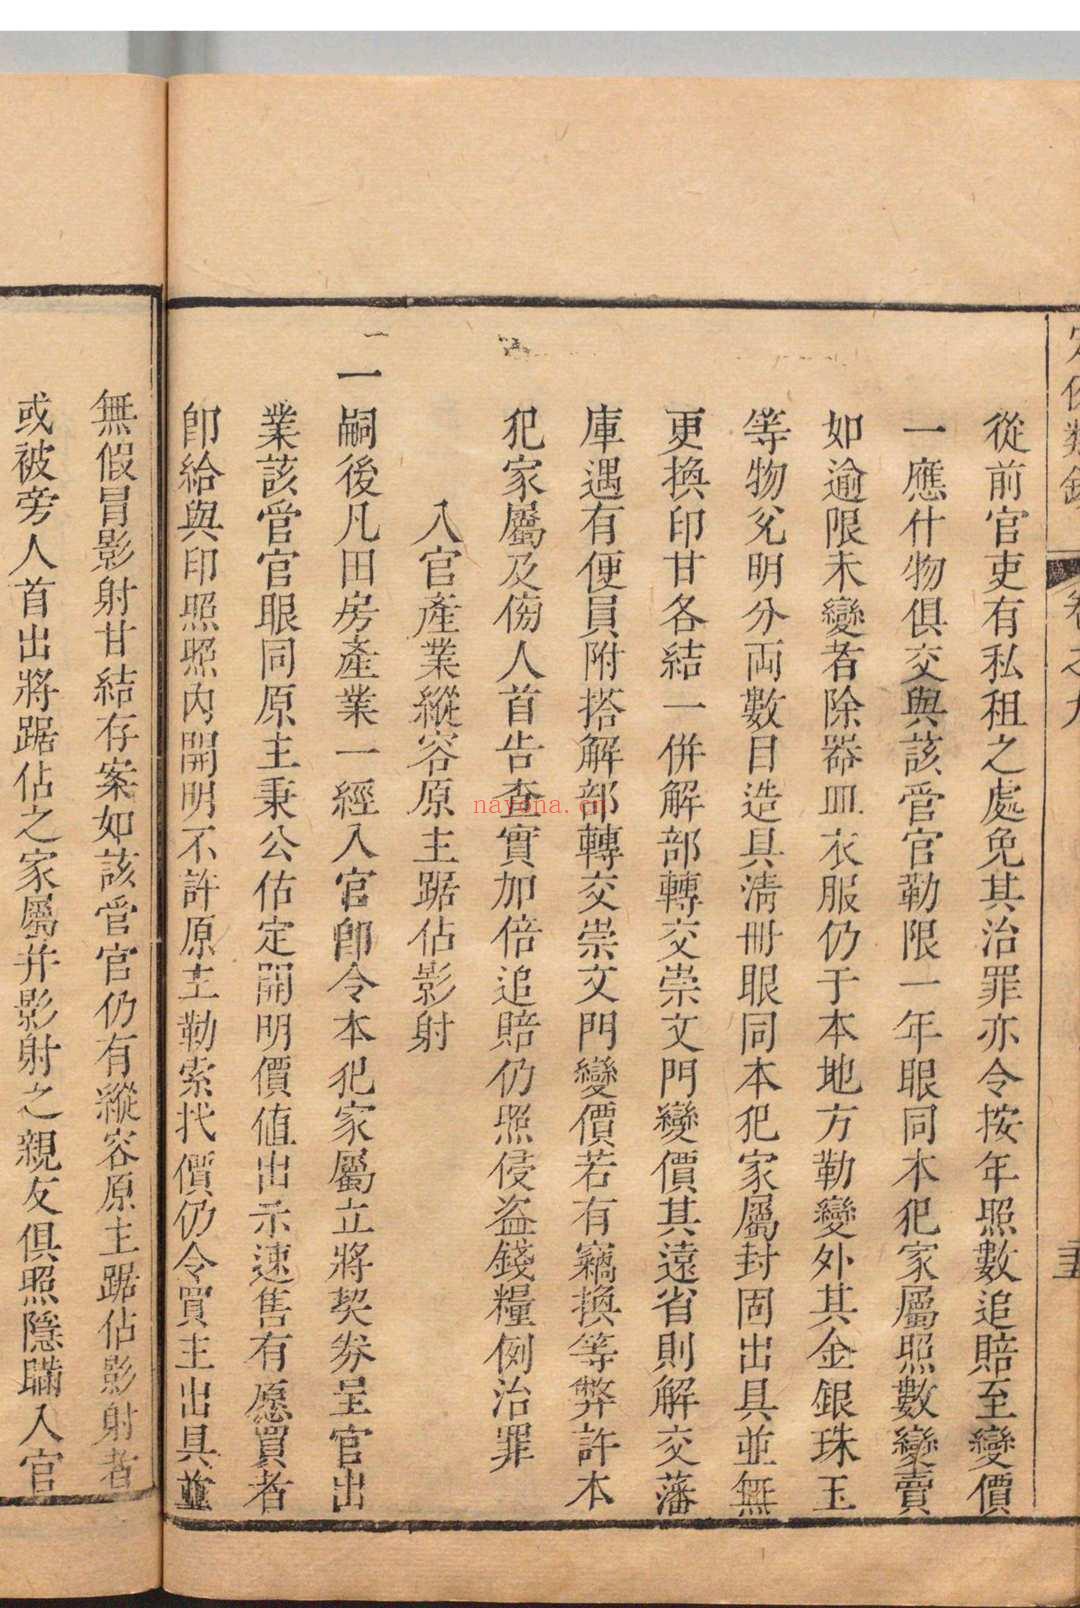 定例類鈔
卷之九
從前官吏有私租之處免其治罪亦令按年照數追賠至變價
一應什物俱交與該管官勒限一年眼同本犯家屬照數變賣
如逾限未變者除器皿衣服仍于本地方勒變外其金銀珠玉
等物兌明分両數目造具清冊眼同本犯家屬封固出具並無
更換印甘各結一併解部轉交崇文門變價其遠省則解交藩
庫遇有便員附搭解部轉交崇文門變價若有竊換等弊許本
犯家屬及傍人首告查實加倍追賠仍照侵盜錢糧例治罪
入官產業縱容原主踞佔影射
一嗣後凡田房產業一經入官卽令本犯家屬立將契券呈官出
業該管官眼同原主秉公估定開明價值出示速售有愿買者
卽給與印照照內開明不許原主勒索找價仍令買主出具並
無假冒影射甘結存案如該管官仍有縱容原主踞佔影射者
或被旁人首出將踞佔之家屬并影射之親友俱照隱瞞入官
nayona.cn